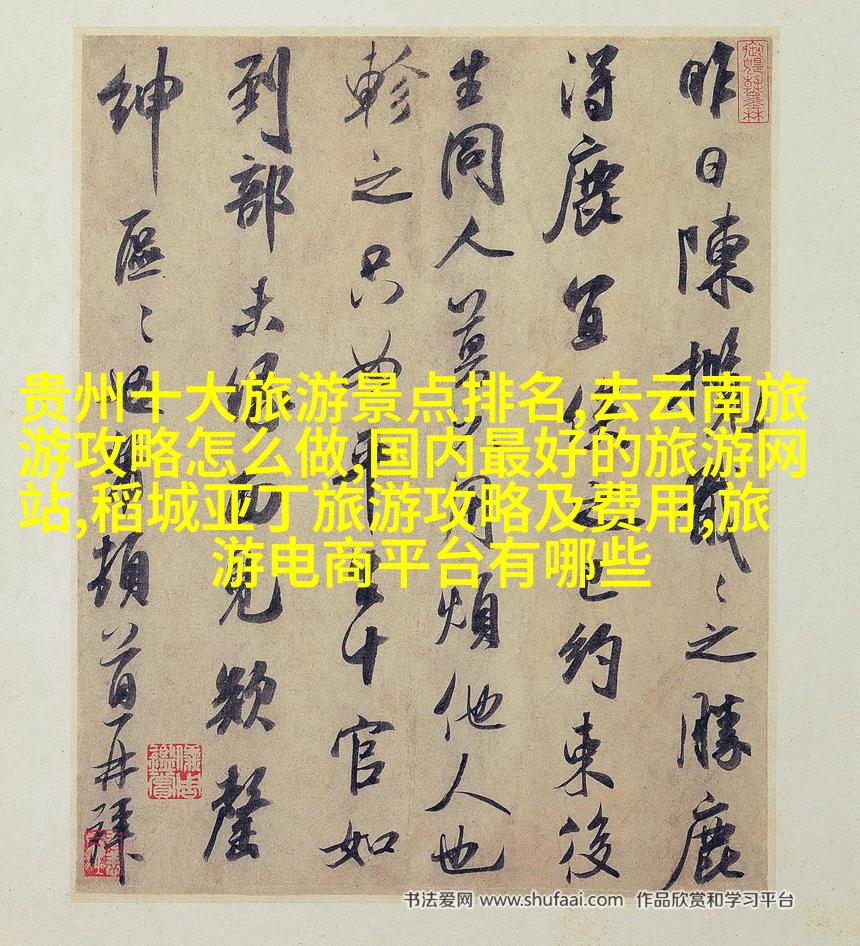 昨日陳攬戢之勝鹿
得鹿宜倍之也約束後
生同人莫閑煩他人也
軫之只如平生十官如
到部未偶面見欵
紳區〻頓首再拜
贵州十大旅游景点排名,去云南旅
游攻略怎么做,国内最好的旅游网
站,稻城亚丁旅游攻略及费用,旅
游电商平台有哪些
书法爱网 www.shufaai.com 作品欣赏和学习平台